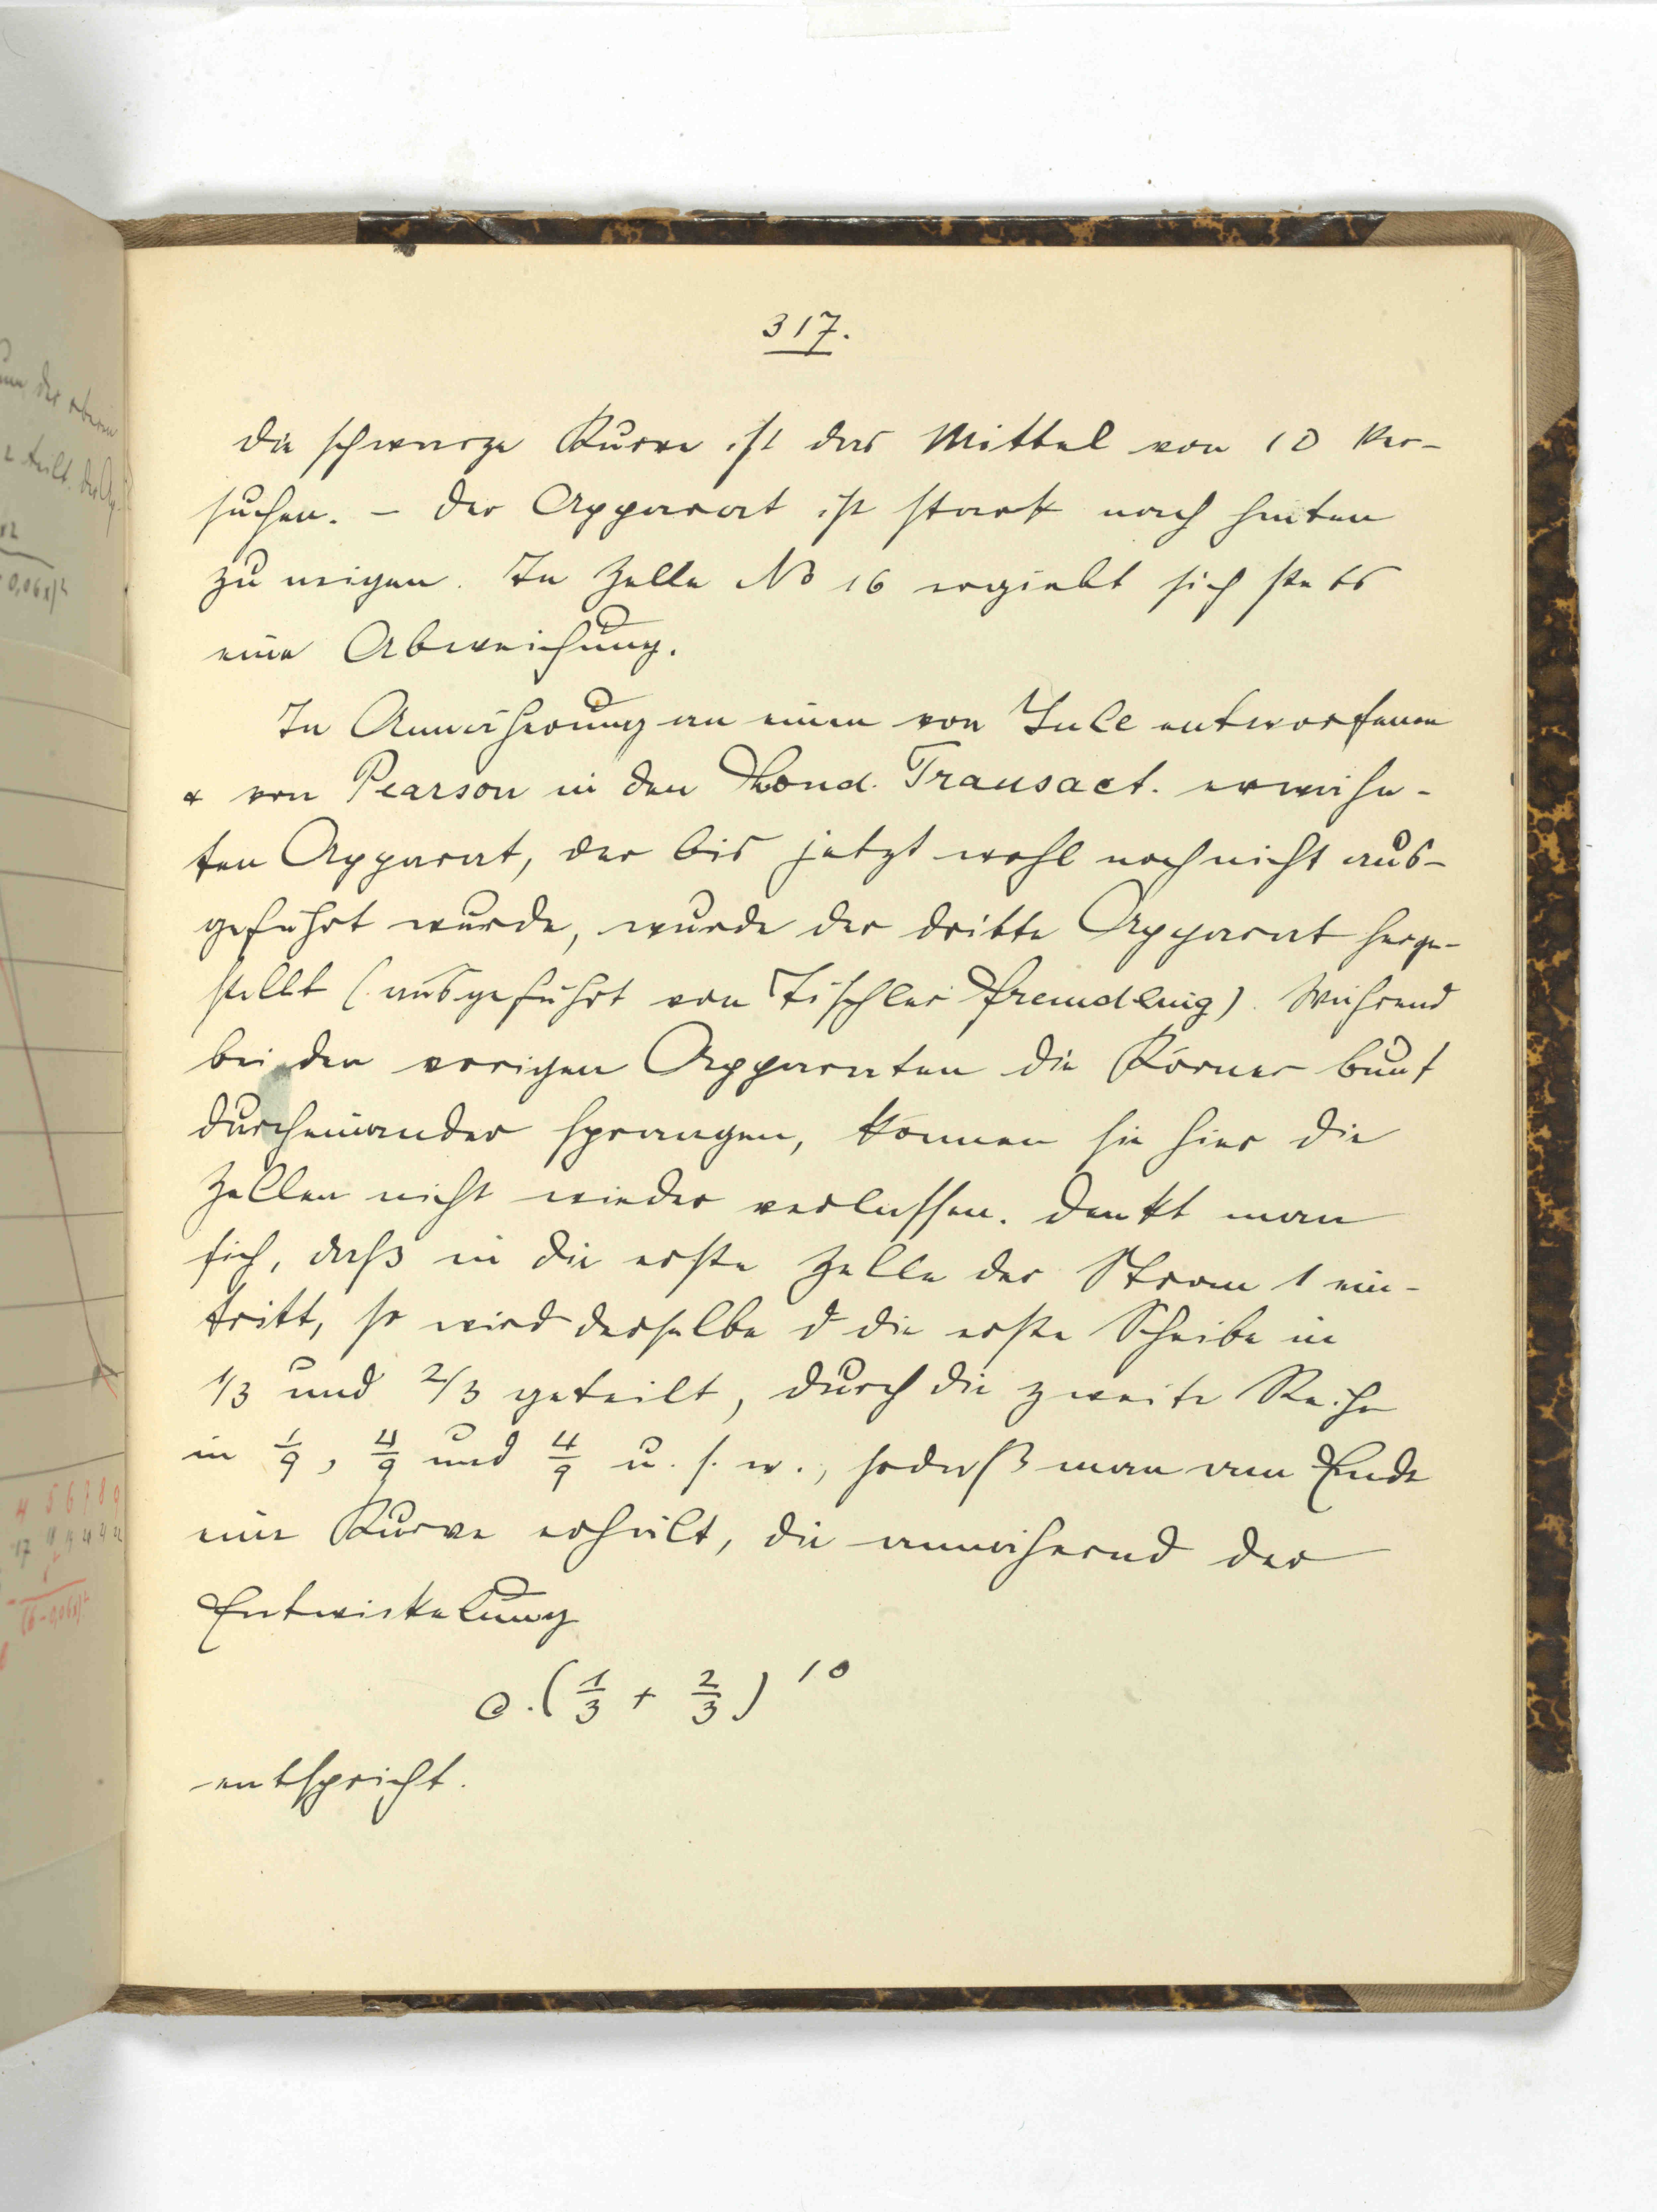 317.
Die schwarze Kurve ist das Mittel von 10 Ver-
suchen. – Der Apparat ist stark nach hinten
zu neigen. In Zelle No 16 ergiebt sich stets
eine Abweichung.
In Annäherung an einen von Yule entworfenen
& von Pearson in den Lond. Transact. erwähn-
ten Apparat, der bis jetzt wohl noch nicht aus-
geführt wurde, wurde der dritte Apparat herge-
stellt (ausgeführt von Tischler Fremdling). Während
bei den vorigen Apparaten die Körner bunt
durcheinander sprangen, können sie hier die
Zellen nicht wieder verlassen. Denkt man
sich, daß in die erste Zelle der Strom 1 ein-
tritt, so wird derselbe d die erste Scheibe in
1/3 und 2/3 geteilt, durch die zweite Reihe
in 1/9, 4/9 und 4/9 u. s. w., sodaß man am Ende
eine Kurve erhält, die annähernd der
Entwickelung
c.(1/3 + 2/3)^10
entspricht.
der oberen
teilt.
0,06x)²
4 5 6 7 8 9
17
(6-0,06x)²